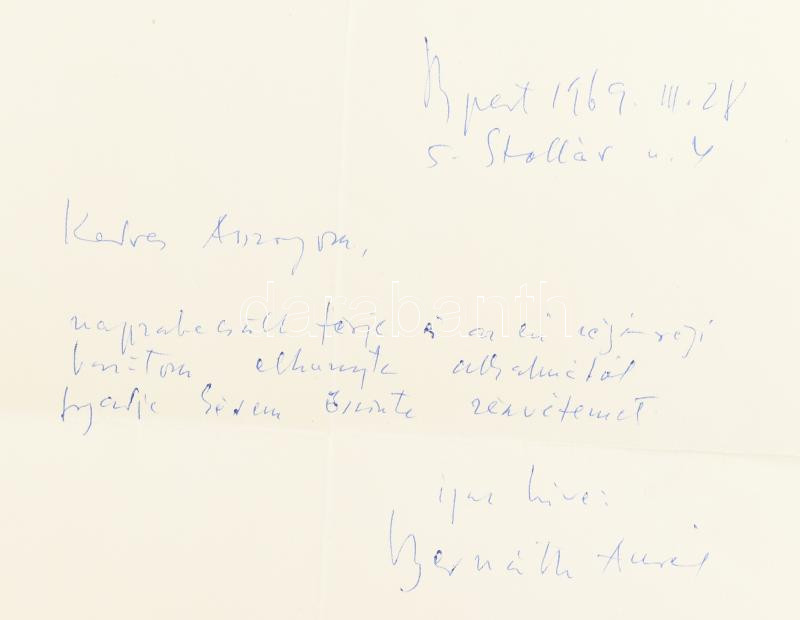 Bpest 1969. III. 28
5. Stollár u. 4
Kedves Asszonyom,
nagyrabecsült férje és az én régi-régi
barátom elhunyta alkalmából
fogadja kérem őszinte részvétemet
igaz híve:
Bernáth Aurél
darabanth